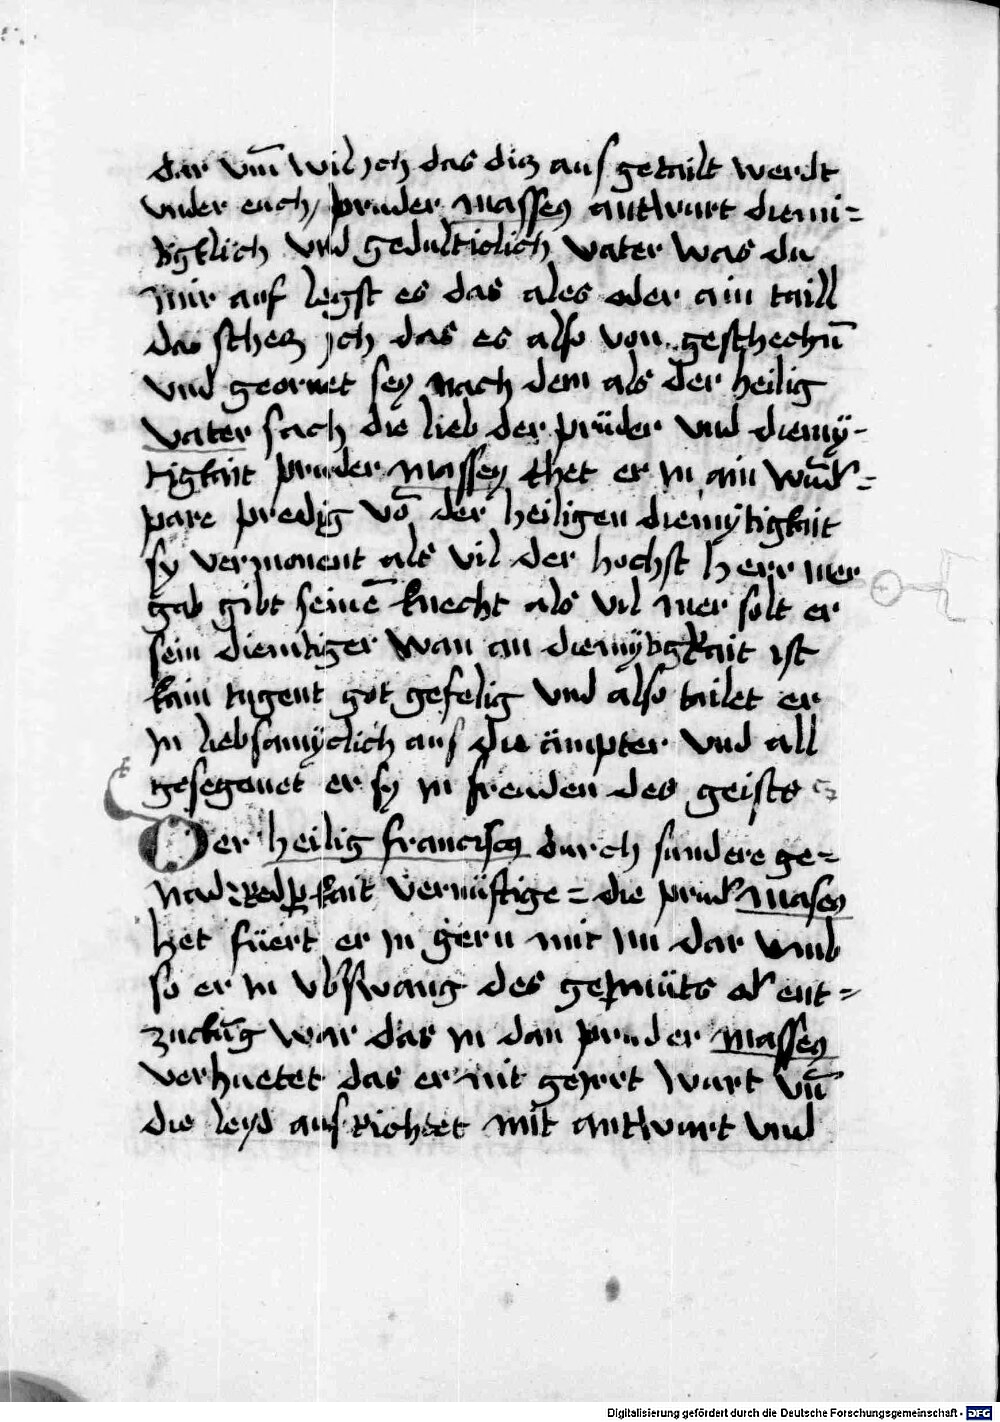 dar vm̄ wil jch das diß aus getailt werdt
vnder euch / pruder massey antwurt diemi=
tigklich vnd gedulticlich vater was du
mir auf legst es das ales oder ain taill
das schetz jch das es also von geschechn̄
vnd geornet sey nach dem als der heilig
vater sach die lieb der prüder vnd diemÿ=
tigkait pruder massey thet er in ain wūd'=
pare predig vō der heiligen diemÿtigkait
sy vermonent als vil der hochst herr mer
gab gibt seinē knecht als vil mer solt er
sein diemtiger wan an diemÿtigkait ist
kain tugent got gefelig vnd also tailet er
in liebsamyclich aus die ämpter vnd all
gesegenet er sy in freuden des geists
Der heilig franciscus durch sundere ge=
nad redperkait vernüftige= die prud' masey
het füert er in gern mit im dar vmb
so er in vbswang des gemüts od' ent=
zuckūg war das in dan pruder massey
verhuetet das er nit geyrt wurt vn̄
die leyd ausrichtet mit antwurt vnd
Digitalisierung gefördert durch die Deutsche Forschungsgemeinschaft - DFG